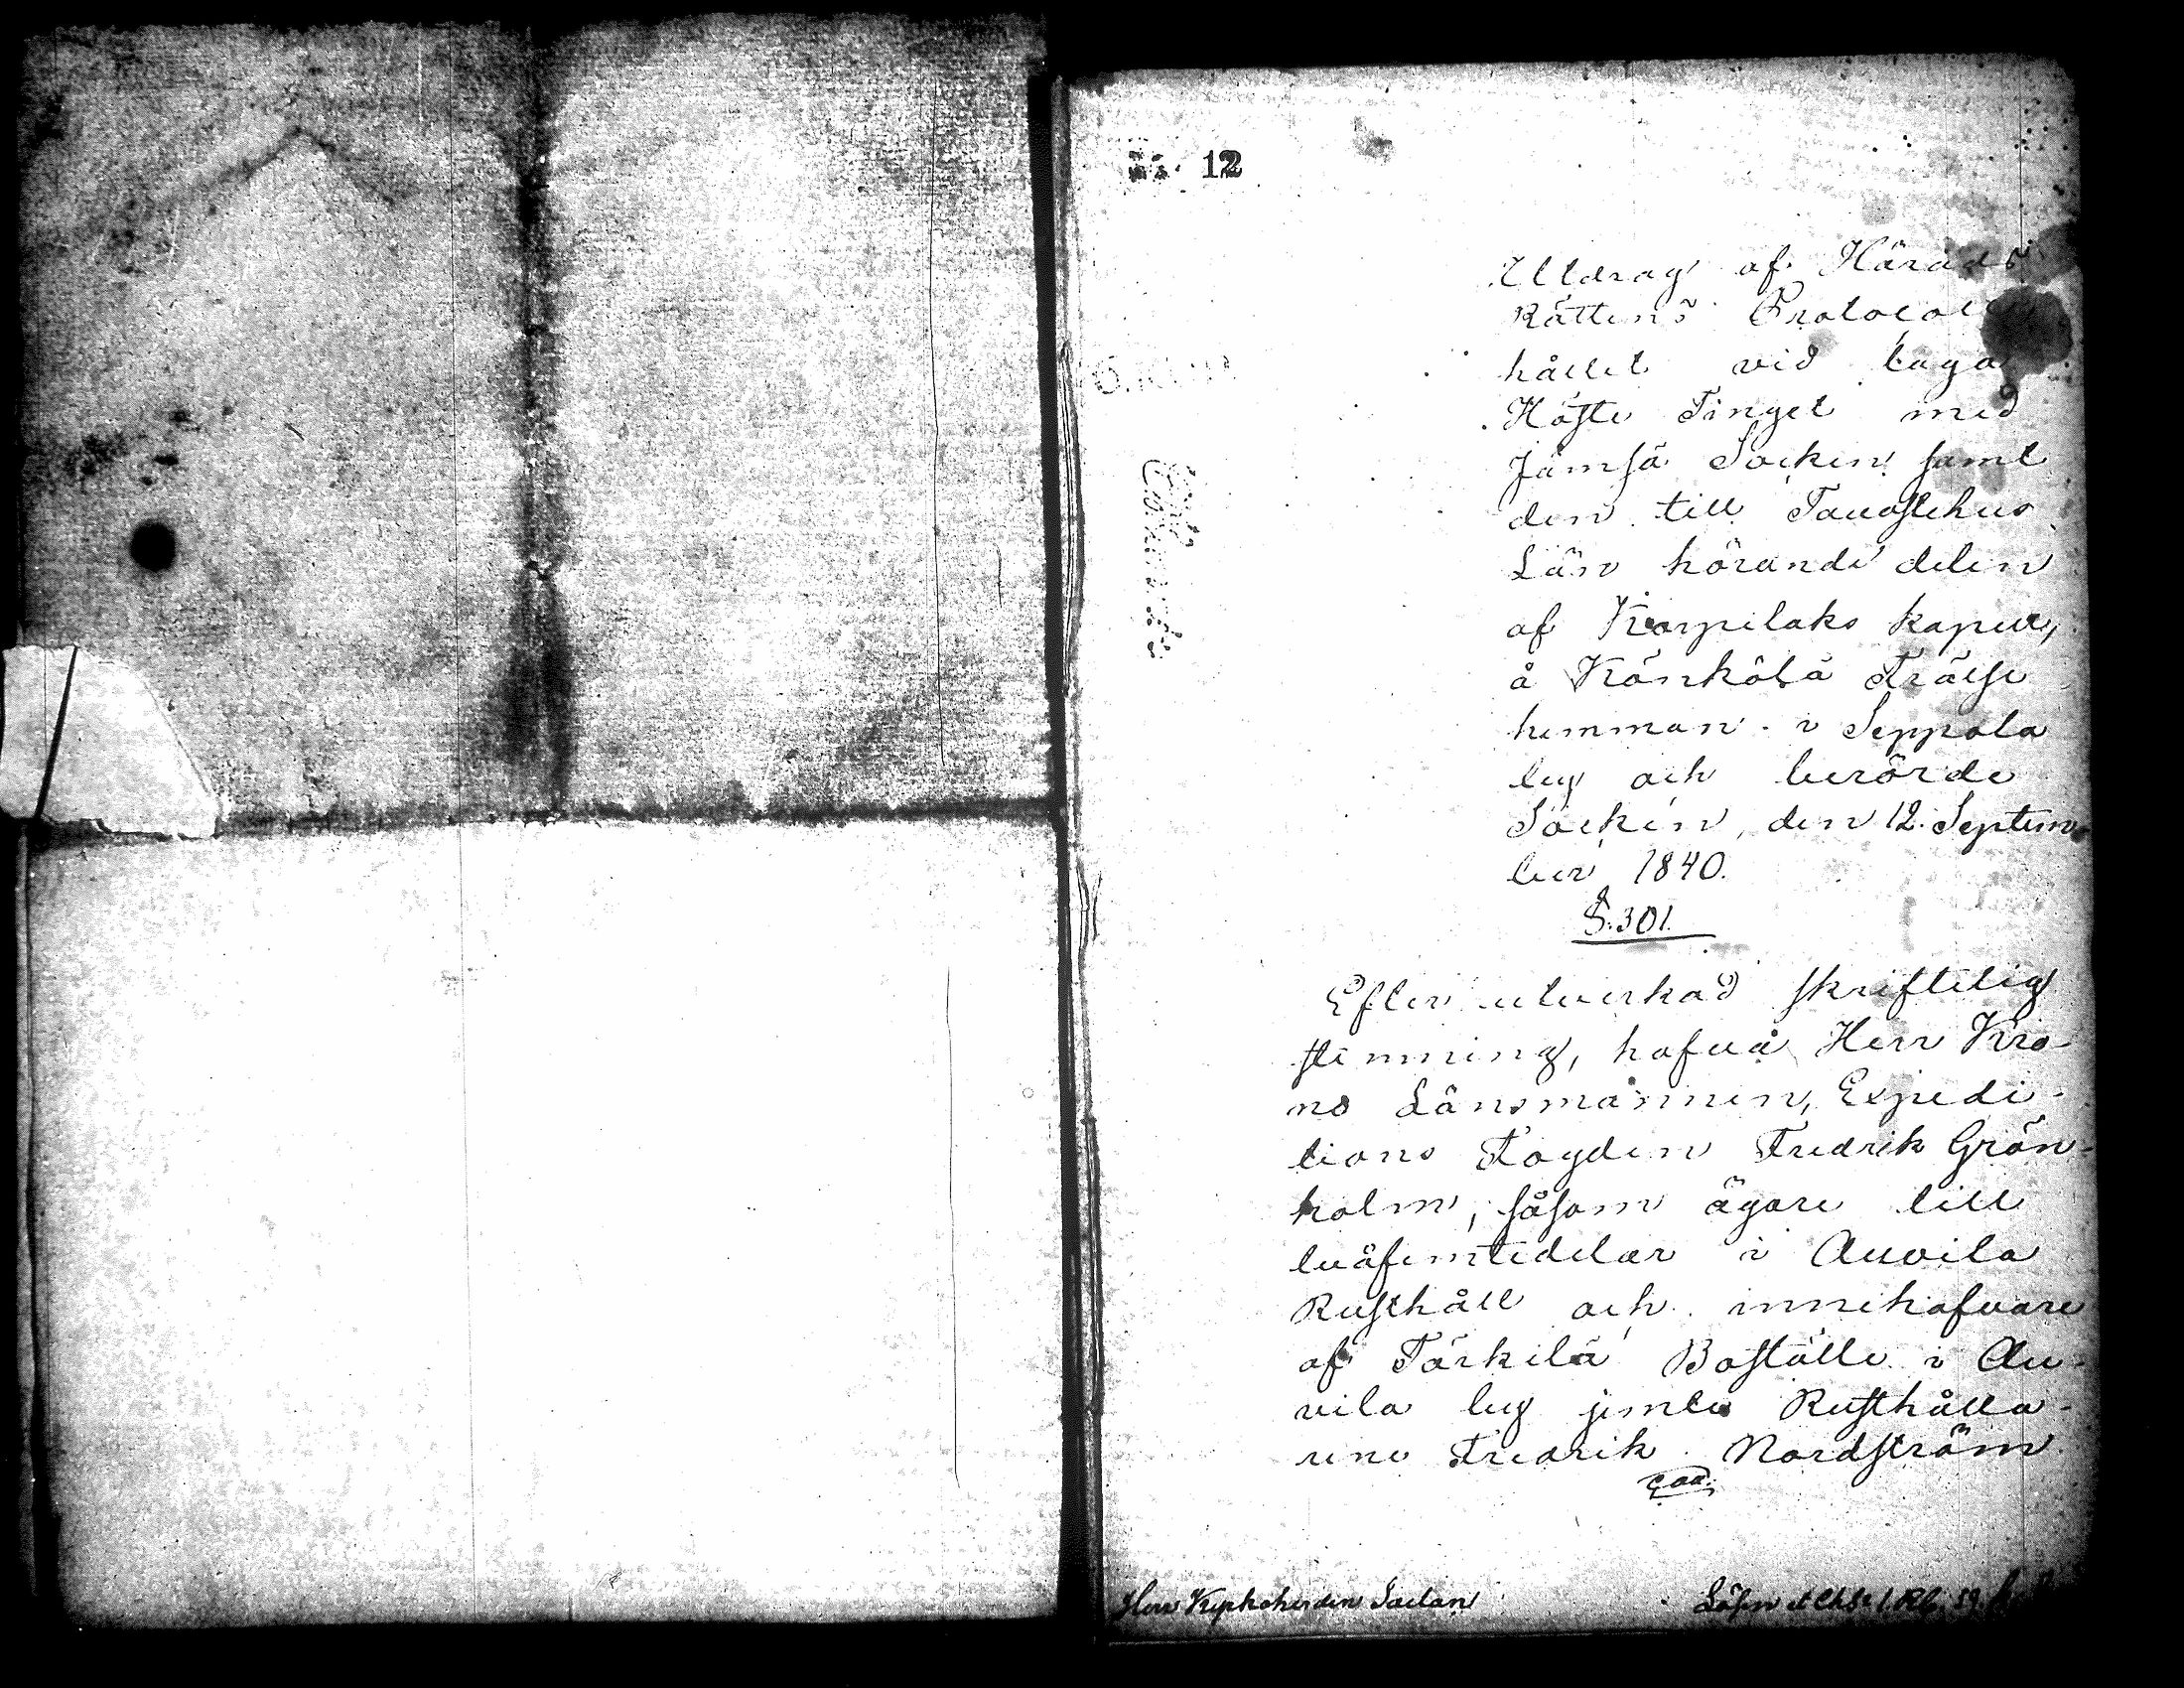 12
Utdrag af Härads
Rättens Protocoll
hållet vid laga
Höste Tinget med
Jämsä Socken samt
den till Tavastehus
Län hörande delen
af Korpilaks kapell,
å Könkölä Frälse
hemman i Seppola
by och berörde
Socken, den 12. Septem-
ber 1840.
§. 301.
Efter utverkad skriftelig
stemning, hafva Herr Kro-
no Länsmannen, Expedi-
tions Fogden Fredrik Grön-
holm, såsom ägare till
tvåfemtedelar i Auvila
Rusthåll och innehafvare
af Tärkilä Boställe i Au-
vila by jemte Rusthålla-
rene Fredrik Nordström
Herr Kyrkoherden
Lösen 1 Rb. 59